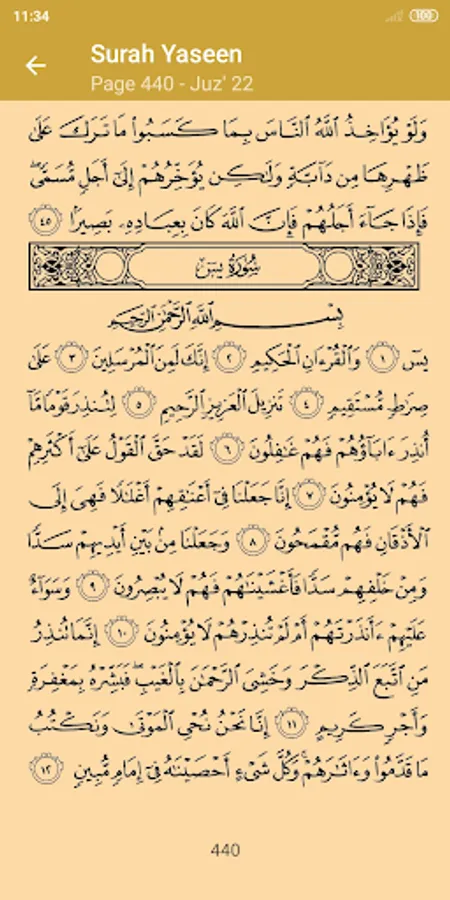 11:34
100
Surah Yaseen
Page 440 - Juz' 22
وَلَوْ يُؤَاخِذُ ٱللَّهُ ٱلنَّاسَ بِمَا كَسَبُوا۟ مَا تَرَكَ عَلَىٰ
ظَهْرِهَا مِن دَآبَّةٍ وَلَٰكِن يُؤَخِّرُهُمْ إِلَىٰٓ أَجَلٍ مُّسَمًّى ۖ
فَإِذَا جَآءَ أَجَلُهُمْ فَإِنَّ ٱللَّهَ كَانَ بِعِبَادِهِۦ بَصِيرًۢا ٤٥
سُورَةُ يسٓ
بِسْمِ ٱللَّهِ ٱلرَّحْمَٰنِ ٱلرَّحِيمِ
يسٓ ١ وَٱلْقُرْءَانِ ٱلْحَكِيمِ ٢ إِنَّكَ لَمِنَ ٱلْمُرْسَلِينَ ٣ عَلَىٰ
صِرَٰطٍ مُّسْتَقِيمٍ ٤ تَنزِيلَ ٱلْعَزِيزِ ٱلرَّحِيمِ ٥ لِتُنذِرَ قَوْمًا مَّآ
أُنذِرَ ءَابَآؤُهُمْ فَهُمْ غَٰفِلُونَ ٦ لَقَدْ حَقَّ ٱلْقَوْلُ عَلَىٰٓ أَكْثَرِهِمْ
فَهُمْ لَا يُؤْمِنُونَ ٧ إِنَّا جَعَلْنَا فِىٓ أَعْنَٰقِهِمْ أَغْلَٰلًا فَهِىَ إِلَى
ٱلْأَذْقَانِ فَهُم مُّقْمَحُونَ ٨ وَجَعَلْنَا مِنۢ بَيْنِ أَيْدِيهِمْ سَدًّا
وَمِنْ خَلْفِهِمْ سَدًّا فَأَغْشَيْنَٰهُمْ فَهُمْ لَا يُبْصِرُونَ ٩ وَسَوَآءٌ
عَلَيْهِمْ ءَأَنذَرْتَهُمْ أَمْ لَمْ تُنذِرْهُمْ لَا يُؤْمِنُونَ ١٠ إِنَّمَا تُنذِرُ
مَنِ ٱتَّبَعَ ٱلذِّكْرَ وَخَشِىَ ٱلرَّحْمَٰنَ بِٱلْغَيْبِ ۖ فَبَشِّرْهُ بِمَغْفِرَةٍ
وَأَجْرٍ كَرِيمٍ ١١ إِنَّا نَحْنُ نُحْىِ ٱلْمَوْتَىٰ وَنَكْتُبُ
مَا قَدَّمُوا۟ وَءَاثَٰرَهُمْ ۚ وَكُلَّ شَىْءٍ أَحْصَيْنَٰهُ فِىٓ إِمَامٍ مُّبِينٍ ١٢
440